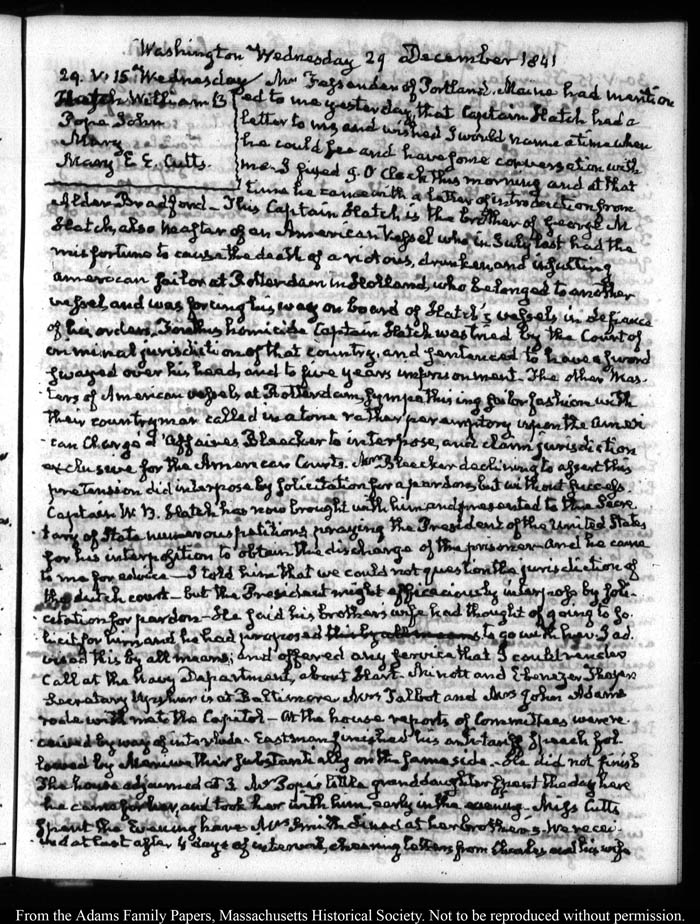 Washington Wednesday 29 December 1841
29. V. 15 Wednesday Mr Fessenden of Portland, Maine had mention
Hatch William B ed to me yesterday, that Captain Hatch had a
Pope John letter to me and wished I would name a time when
Mary he could see and have some conversation with
Mary E. E. Cutts. me. I fixed 9. O'Clock this morning and at that
time he came with a letter of introduction from
Alden Bradford – This Captain Hatch is the brother of George M
Hatch, also Master of an American vessel who in July last had the
misfortune to cause the death of a riotous, drunken, and insulting
American sailor at Rotterdam in Holland, who belonged to another
vessel, and was forcing his way on board of Hatch's vessels in defiance
of his orders. For this homicide Captain Hatch was tried by the Court of
criminal jurisdiction of that country, and sentenced to have a sword
swayed over his head, and to five years imprisonment. The other Mas-
ters of American vessels at Rotterdam, sympathising sailor fashion with
their countryman called in a tone rather peremptory upon the Ameri
can Chargé d'Affaires Bleecker to interpose, and claim jurisdiction
exclusive for the American Courts. Mr Bleecker declining to assert this
pretension did interpose by solicitation for a pardon, but without success.
Captain W. B. Hatch has now brought with him and presented to the Secre
tary of State numerous petitions, praying the President of the United States
for his interposition to obtain the discharge of the prisoner – And he came
to me for advice – I told him that we could not question the jurisdiction of
the dutch court – but the President might efficaciously interpose by soli-
citation for pardon – He said his brother's wife had thought of going to so-
licit for him, and he had proposed this by all means to go with her. I ad
vised this by all means; and offered any service that I could render
Call at the Navy Department, about Hart. Minott and Ebenezer Thayer
Secretary Upshur is at Baltimore Mrs Talbot and Mrs John Adams
rode with me to the Capitol – At the house reports of Committees were re
ceived by way of interlude. Eastman finished his anti-tariff speech fol-
lowed by Meriwether substantially on the same side – He did not finish
The house adjourned at 3. Mr Pope's little granddaughter spent the day here
he came for her, and took her with him, early in the evening – Miss Cutts
spent the Evening here Mrs Smith dined at her brother's. We recei-
ved at last after 4 days of interval, cheering letters from Charles and his wife
From the Adams Family Papers, Massachusetts Historical Society. Not to be reproduced without permission.